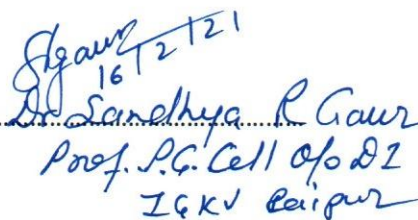 SRgaur
16/2/21
Dr Sandhya R Gaur
Prof. P.G. Cell O/o DI
IGKV Raipur